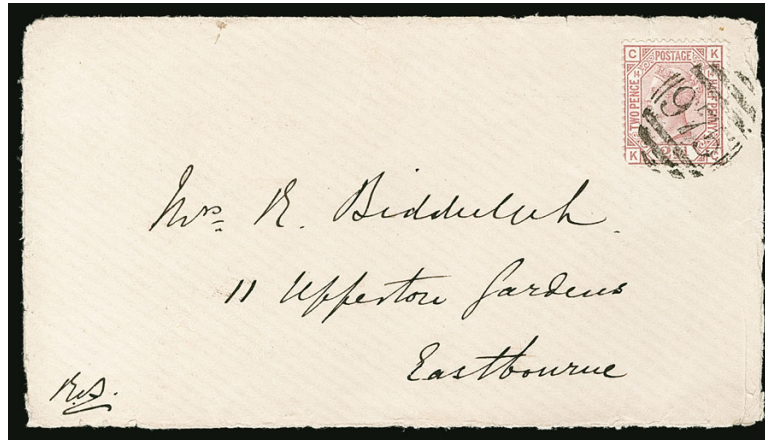 C POSTAGE K
TWO PENCE
HALFPENNY
K 2½d C
Mrs R. Biddulph.
11 Upperton Gardens
Eastbourne